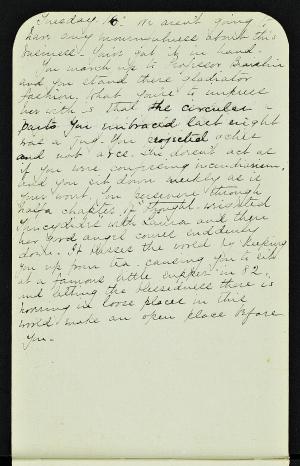 Tuesday 16. We aren't going to
have any mournfulness about this
business. You've got it in hand.
You march up to Professor
and you stand there gladiator
fashion. What you're to impress
her with is that the circular
parts you embraced last night
was a jug. You expected aches
and not a rce. She doesn't act as
if you were confessing incendiarism,
and you sit down meekly as is
your wont. You persevere through
half a chapter of Fourth-weighted
with Luisa and then
her good angel comes suddenly
down. It passes the world by keeping
you up from tea, causing you to eat
at a famous little supper in 82,
and letting the blessedness there is
horning in loose places in this
world make an open place before
you.